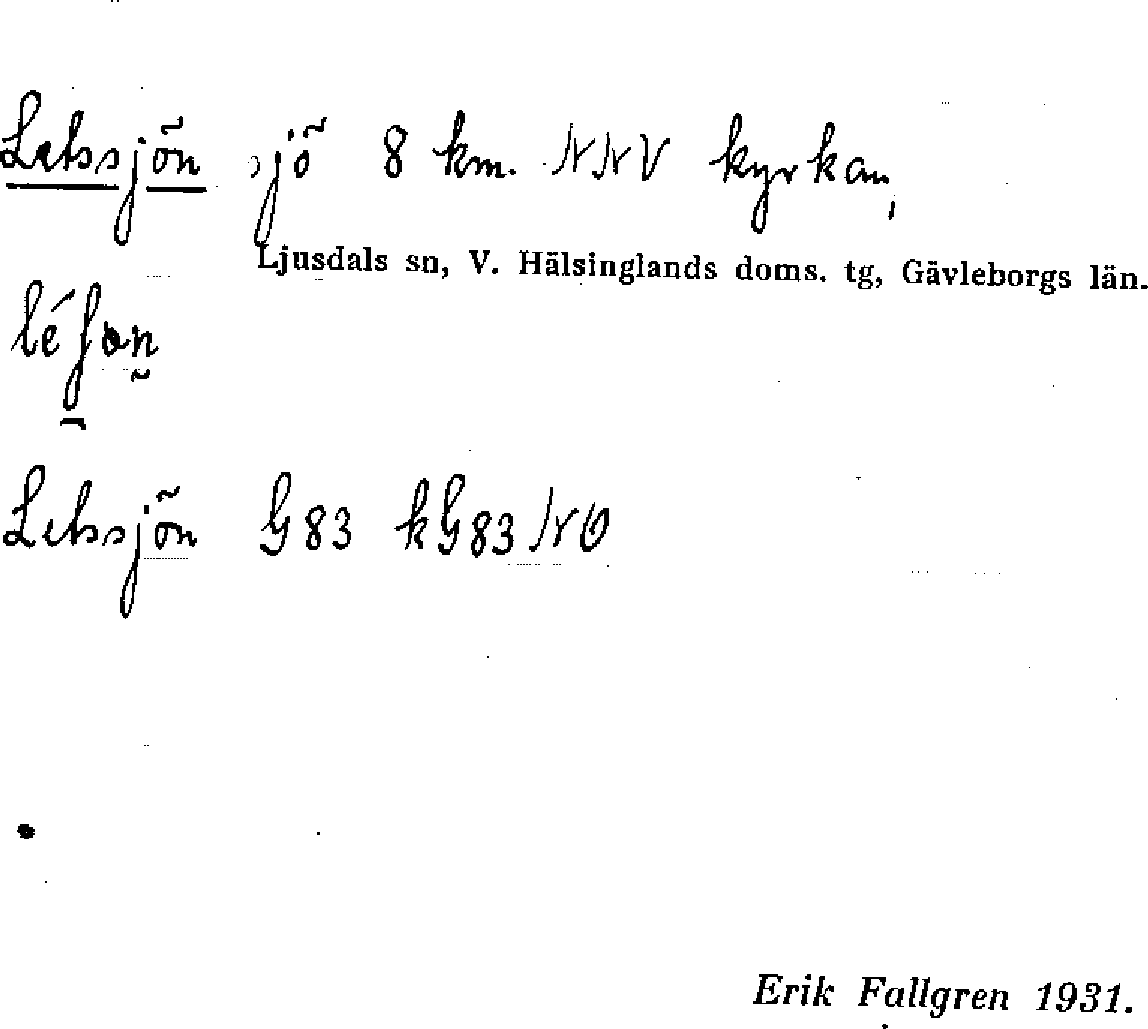 Letssjön sjö 8 km. NNV kyrkan,
Ljusdals sn, V. Hälsinglands doms. tg, Gävleborgs län.
Letssjön G83 kG83NO
Erik Fallgren 1931.